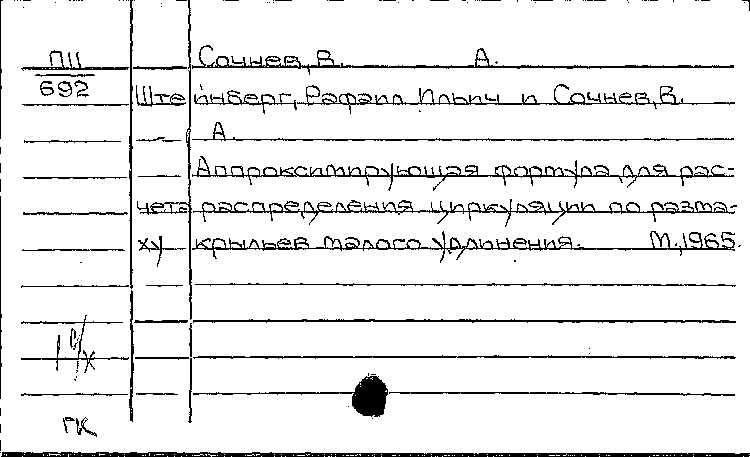 П11 Сочнев, В. А.
692
Штейнберг, Рафаил Ильич и Сочнев, В.
А.
Аппроксимирующая формула для рас-
чета распределения циркуляции по разма-
ху крыльев малого удлинения. М., 1965.
ГК